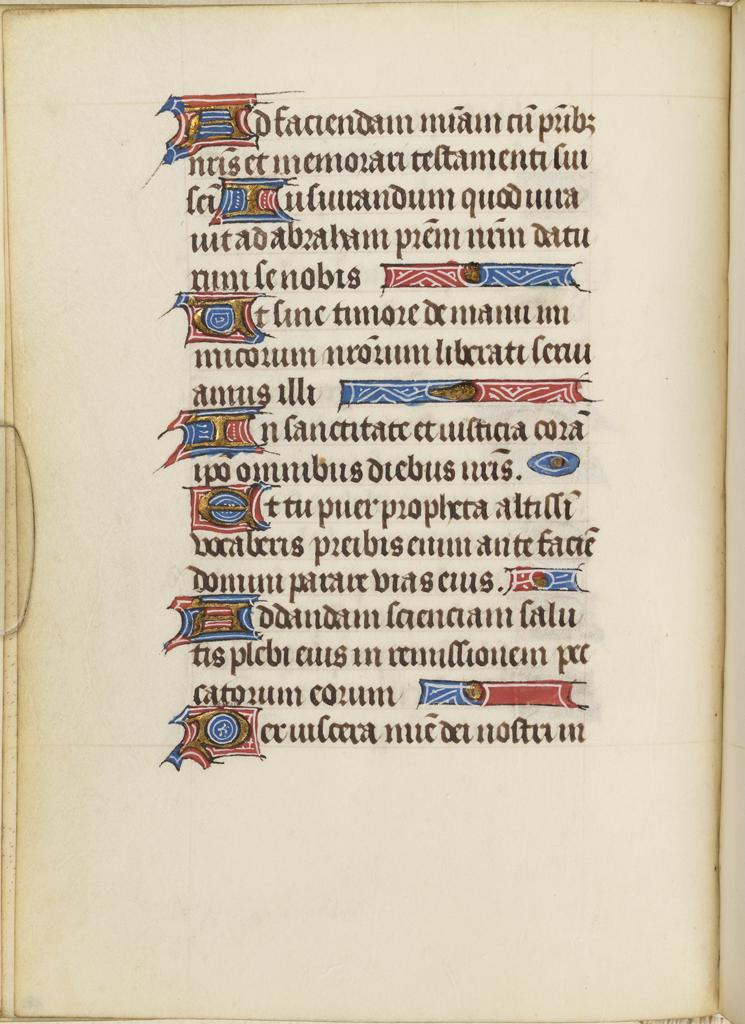 Ad faciendam mīam cū pr̄ib;
nr̄is et memorari testamenti sui
sc̄i Iusiurandum quod iura
uit ad abraham prēm nr̄m datu
rum se nobis
Ut sine timore de manu ini
micorum nr̄orum liberati serui
amus illi
In sanctitate et iusticia corā
ipō omnibus diebus nr̄is.
Et tu puer propheta altissī
vocaberis preibis enim ante faciē
domini parare vias eius.
Ad dandam scienciam salu
tis plebi eius in remissionem pec
catorum eorum
Per uiscera mīe dei nostri in